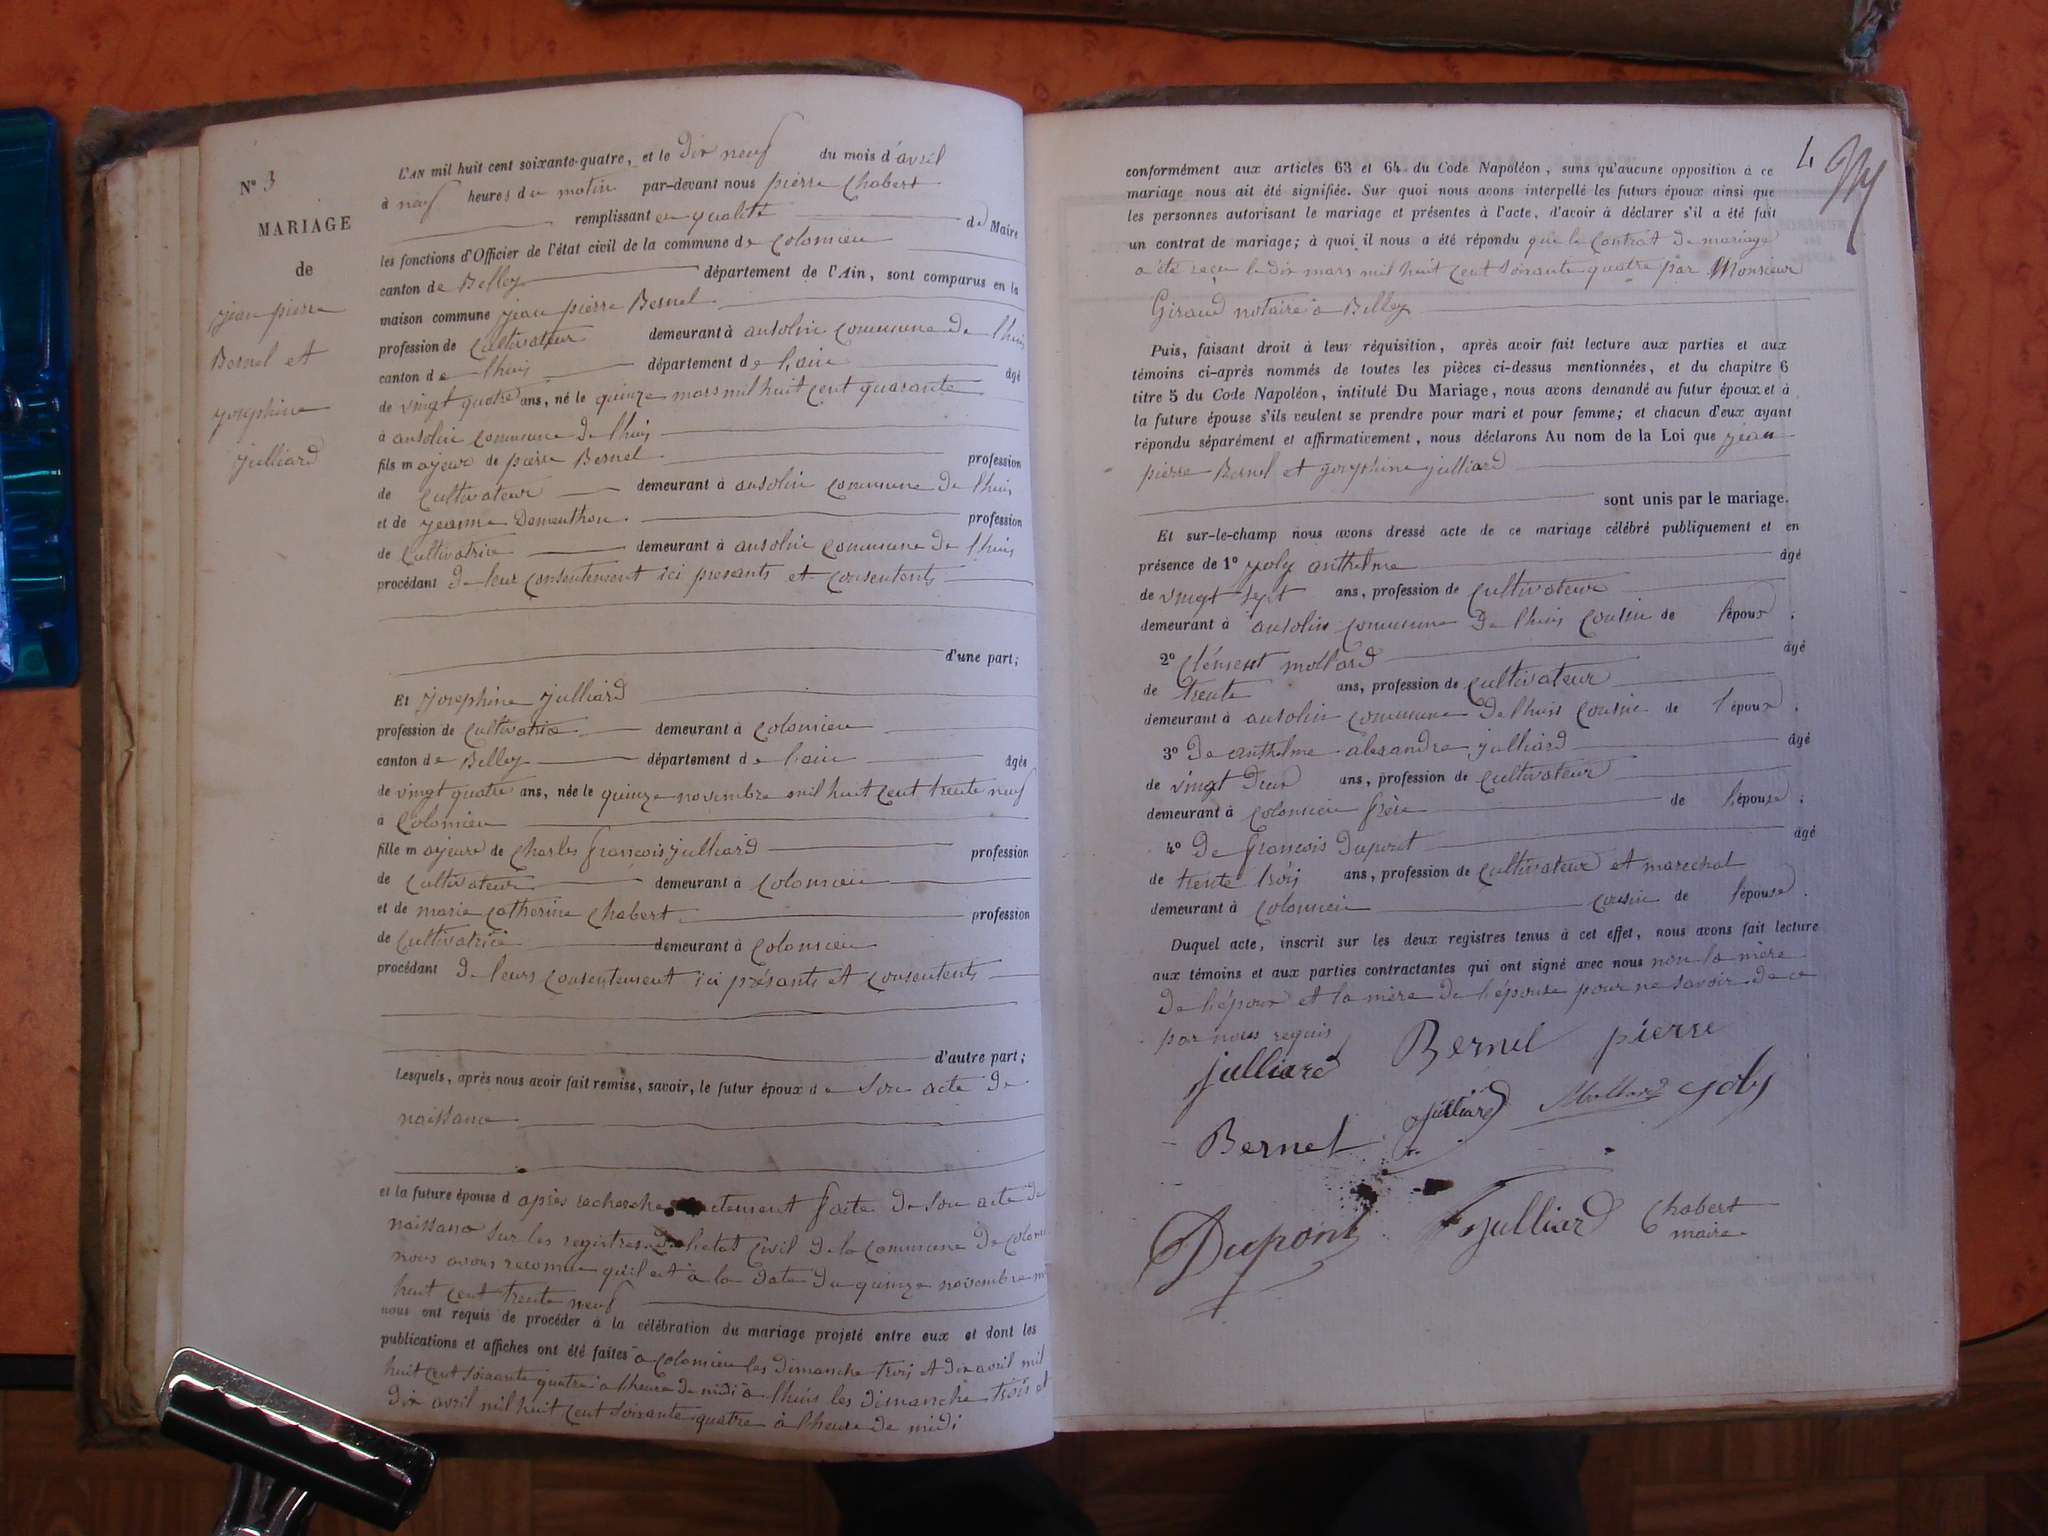 N° 3
MARIAGE
de
jean pierre
Bernel et
josephine
julliard
L'AN mil huit cent soixante-quatre, et le dix neuf du mois d'avril
à neuf heures du matin par-devant nous pierre Chabert
remplissant en qualité de Maire
les fonctions d'Officier de l'état civil de la commune de Colomieu
canton de Belley département de l'Ain, sont comparus en la
maison commune jean pierre Bernel
profession de Cultivateur demeurant à ansolin commune de lhuis
canton de lhuis département de lain âgé
de vingt quatre ans, né le quinze mars mil huit cent quarante
à ansolin commune de lhuis
fils majeur de pierre Bernel profession
de cultivateur demeurant à ansolin commune de lhuis
et de jeanne Demeuthon profession
de Cultivatrice demeurant à ansolin commune de lhuis
procédant de leur consentement ici presents et consentents
d'une part;
Et josephine julliard
profession de cultivatrice demeurant à Colomieu
canton de Belley département de lain âgée
de vingt quatre ans, née le quinze novembre mil huit cent trente neuf
à Colomieu
fille majeure de Charles francois julliard profession
de Cultivateur demeurant à Colomieu
et de marie catherine Chabert profession
de Cultivatrice demeurant à Colomieu
procédant de leurs consentement ici présants et consentents
d'autre part;
Lesquels, après nous avoir fait remise, savoir, le futur époux de son acte de
naissance
et la future épouse d après recherche faite de son acte de
naissance sur les registres de lietat Civil de la commune de Colomieu
nous avons reconnue quil est à la date du quinze novembre mil
huit cent trente neuf
nous ont requis de procéder à la célébration du mariage projeté entre eux et dont les
publications et affiches ont été faites à Colomieu les dimanche trois et dix avril mil
huit cent soixante quatre a lheure de midi à lhuis les dimanche trois et
dix avril mil huit cent soixante quatre à lheure de midi
4
conformément aux articles 63 et 64 du Code Napoléon, sans qu'aucune opposition à ce
mariage nous ait été signifiée. Sur quoi nous avons interpellé les futurs époux ainsi que
les personnes autorisant le mariage et présentes à l'acte, d'avoir à déclarer s'il a été fait
un contrat de mariage; à quoi il nous a été répondu que le Contrat de mariage
a été reçu le dix mars mil huit cent soixante quatre par Monsieur
Giraud notaire à Belley
Puis, faisant droit à leur réquisition, après avoir fait lecture aux parties et aux
témoins ci-après nommés de toutes les pièces ci-dessus mentionnées, et du chapitre 6
titre 5 du Code Napoléon, intitulé Du Mariage, nous avons demandé au futur époux et à
la future épouse s'ils veulent se prendre pour mari et pour femme; et chacun d'eux ayant
répondu séparément et affirmativement, nous déclarons Au nom de la Loi que jean
pierre Bernel et josephine julliard
sont unis par le mariage.
Et sur-le-champ nous avons dressé acte de ce mariage célébré publiquement et en
présence de 1° joly anthelme âgé
de vingt sept ans, profession de cultivateur
demeurant à ansolin commune de lhuis cousin de l'époux;
2° Clément mollard âgé
de trente ans, profession de cultivateur
demeurant à ansolin commune de lhuis cousin de l'époux;
3° de anthelme alexandre julliard âgé
de vingt deux ans, profession de cultivateur
demeurant à Colomieu frère de l'épouse;
4° de francois Dupont âgé
de trente trois ans, profession de cultivateur et marechal
demeurant à Colomieu cousin de l'épouse.
Duquel acte, inscrit sur les deux registres tenus à cet effet, nous avons fait lecture
aux témoins et aux parties contractantes qui ont signé avec nous non la mère
de lépoux et la mère de lépouse pour ne savoir de ce
par nous requis
julliard Bernel pierre
Bernel julliard Mollard joly
Dupont F julliard Chabert
maire